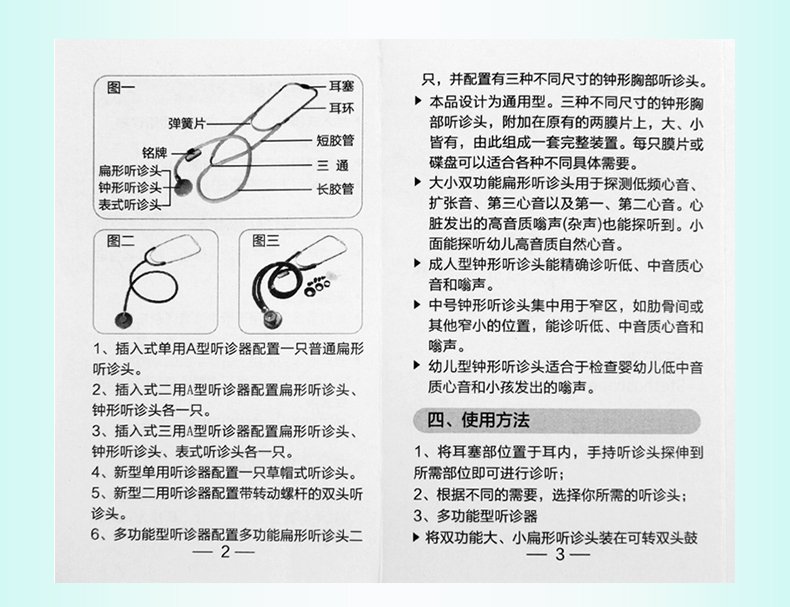 图一
耳塞
耳环
弹簧片
短胶管
铭牌
三 通
扁形听诊头
钟形听诊头
长胶管
表式听诊头
图二
图三
1、插入式单用A型听诊器配置一只普通扁形
听诊头。
2、插入式二用A型听诊器配置扁形听诊头、
钟形听诊头各一只。
3、插入式三用A型听诊器配置扁形听诊头、
钟形听诊头、表式听诊头各一只。
4、新型单用听诊器配置一只草帽式听诊头。
5、新型二用听诊器配置带转动螺杆的双头听
诊头。
6、多功能型听诊器配置多功能扁形听诊头二
— 2 —
只，并配置有三种不同尺寸的钟形胸部听诊头。
▶ 本品设计为通用型。三种不同尺寸的钟形胸
部听诊头，附加在原有的两膜片上，大、小
皆有，由此组成一套完整装置。每只膜片或
碟盘可以适合各种不同具体需要。
▶ 大小双功能扁形听诊头用于探测低频心音、
扩张音、第三心音以及第一、第二心音。心
脏发出的高音质嗡声(杂声)也能探听到。小
面能探听幼儿高音质自然心音。
▶ 成人型钟形听诊头能精确诊听低、中音质心
音和嗡声。
▶ 中号钟形听诊头集中用于窄区，如肋骨间或
其他窄小的位置，能诊听低、中音质心音和
嗡声。
▶ 幼儿型钟形听诊头适合于检查婴幼儿低中音
质心音和小孩发出的嗡声。
四、使用方法
1、将耳塞部位置于耳内，手持听诊头探伸到
所需部位即可进行诊听；
2、根据不同的需要，选择你所需的听诊头；
3、多功能型听诊器
▶ 将双功能大、小扁形听诊头装在可转双头鼓
— 3 —